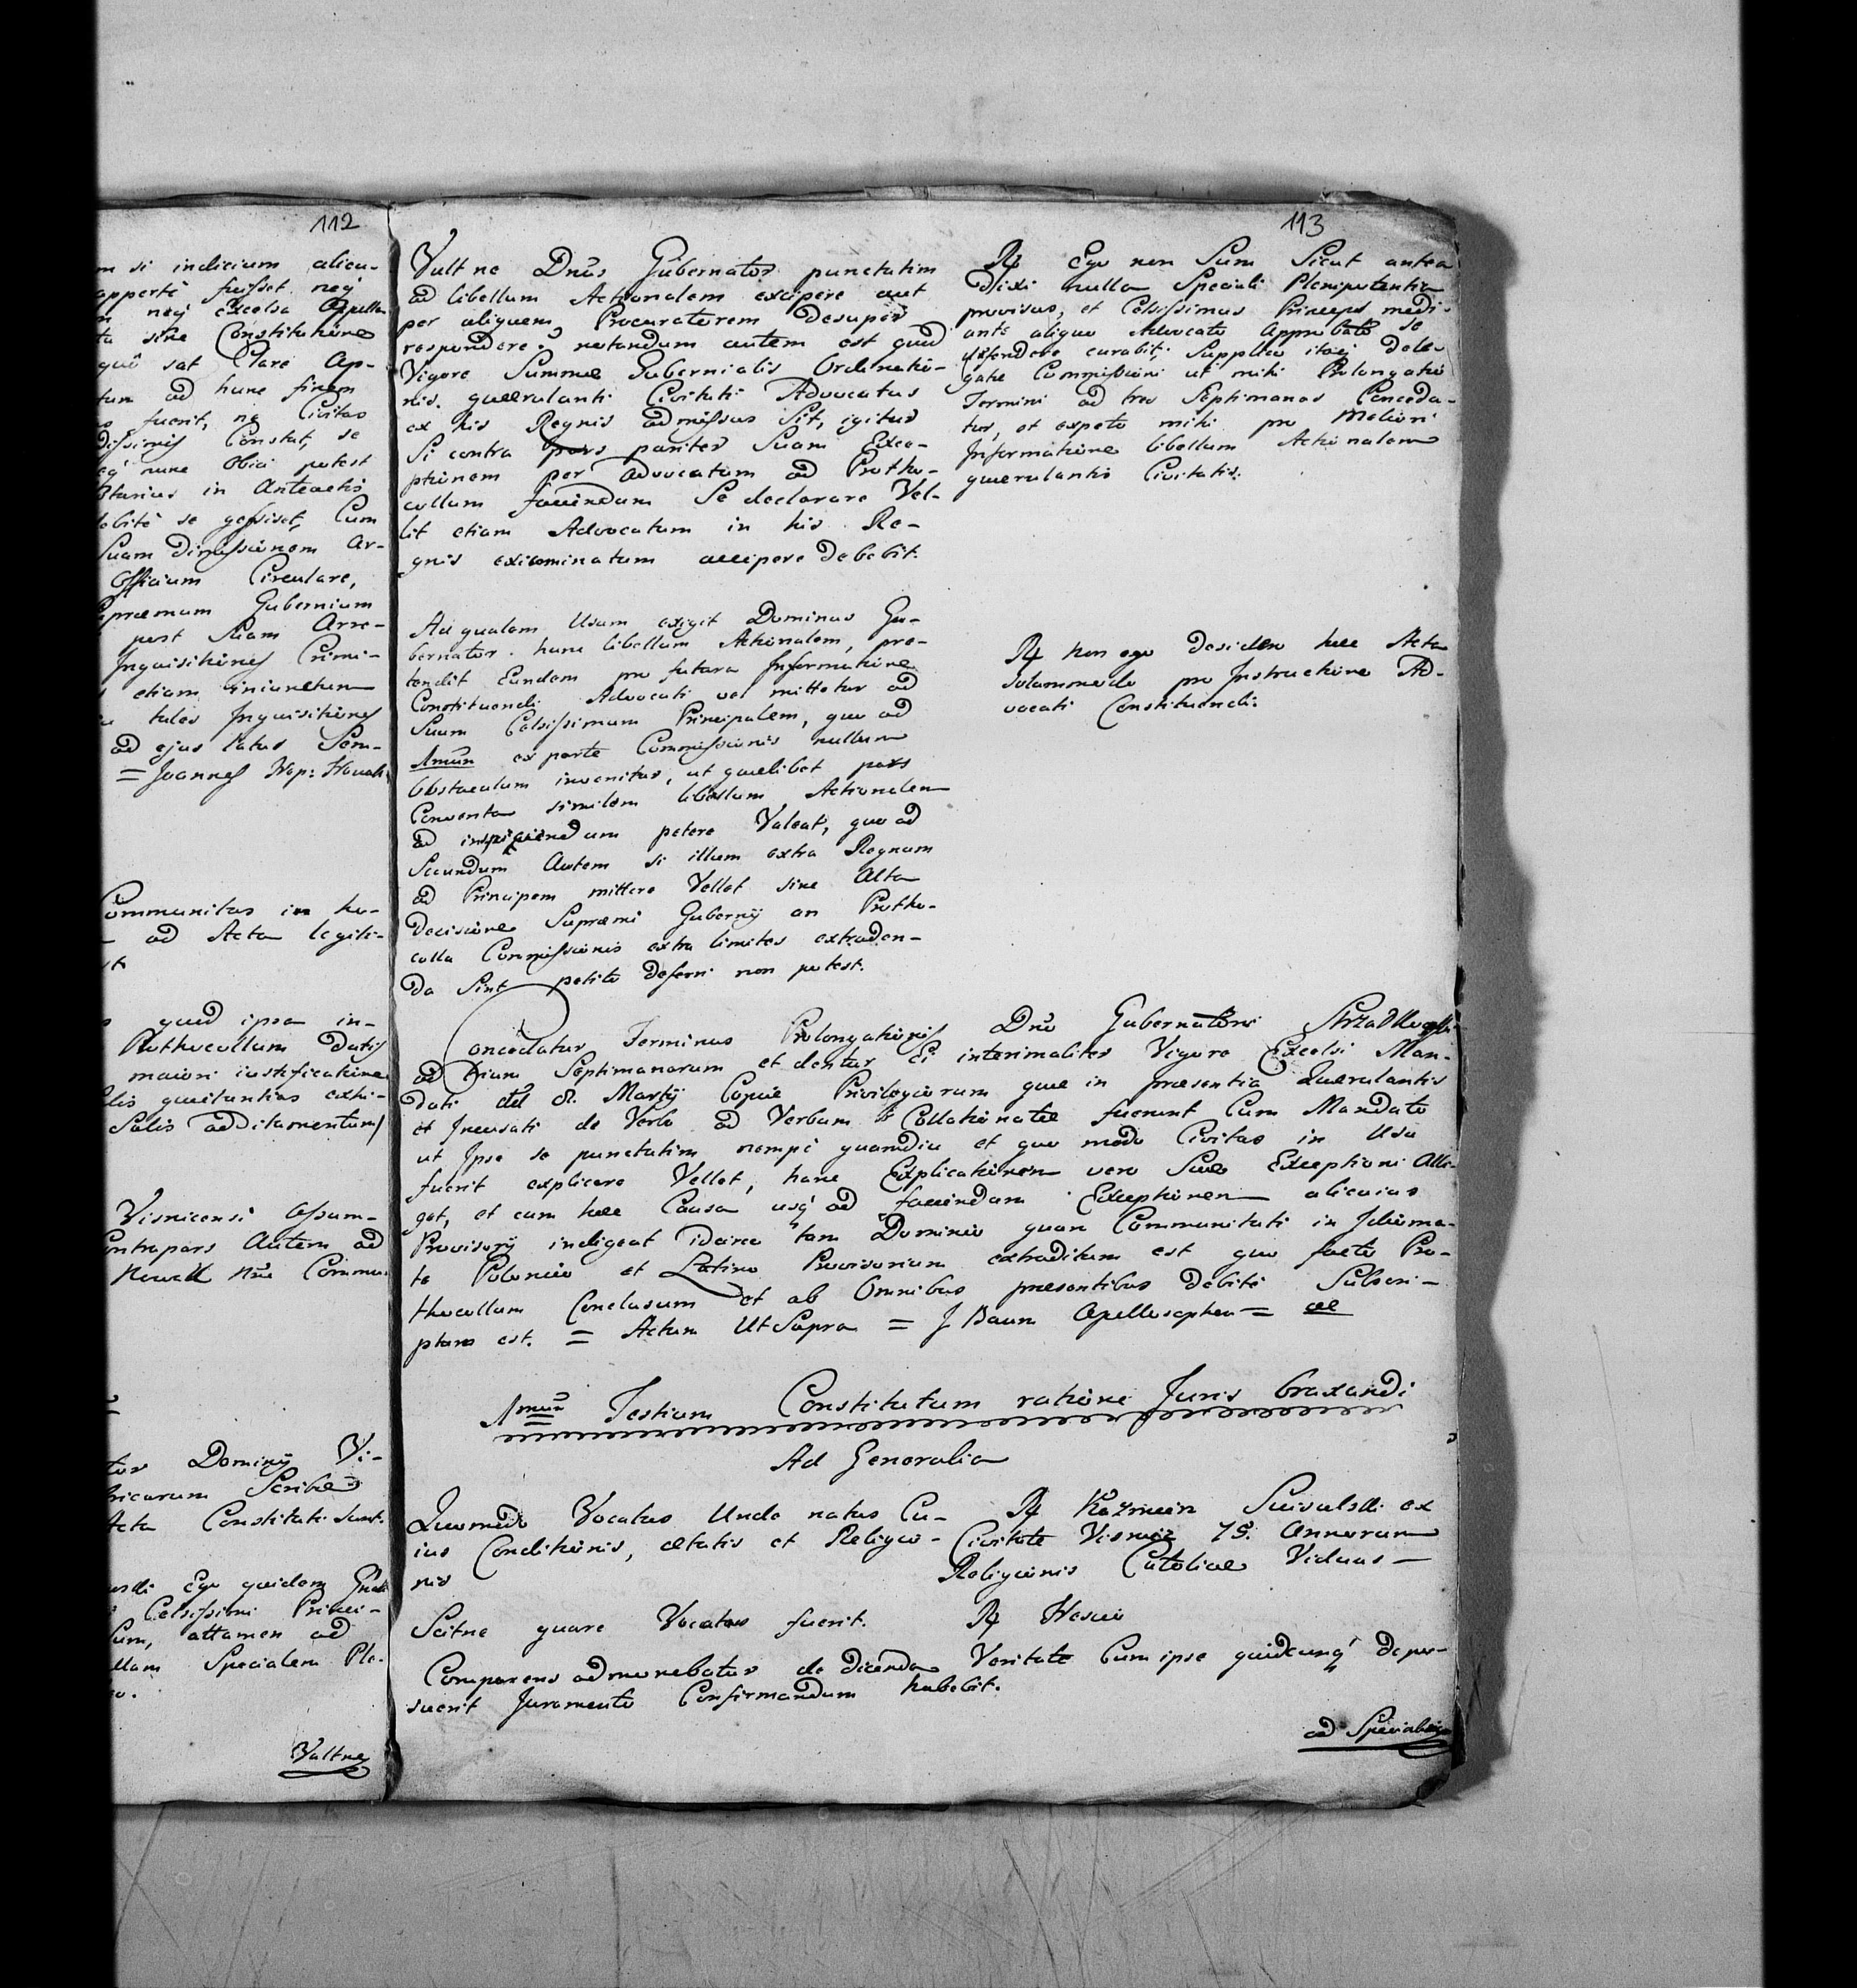 112
m si indicium alicu-
apperte fuisset neq
n neq excelsa Apella
ta sine Constitutione
quo sat Clare Ap-
tum ad hunc finem
fuerit, ne Civitas
dissimis Constat, se
nunc Obici potest
in Anteactis
debite se gessisset, Cum
Suam Dimissionem Ar-
Officium Circulare,
premum Gubernium
post Suam Arre-
Inquisitiones Crimi-
etiam iniunctum
tales Inquisitiones
ad ejus latus Sem-
= Joannes Nep:
Communitas in ho-
ad Acta legiti-
quod ipsa in-
Prothocollum Datis
maiori iustificatione
quietantias exhi-
Salis additamentum
Visnicensi Assum-
ontrapars Autem ad
Newald Commu
tor Dominij Vi-
ricarum Scribe
Acta Constituti sunt.
Ego quidem
Celsissimi Princi-
Sum, attamen ad
llam Specialem Ple-
Vultne
113
Vult ne Dnus Gubernator punctatim
ad libellum Actionalem excipere aut
per aliquem Procuratorem Desuper
respondere? notandum autem est quod
Vigore Summae Gubernialis Ordinatio-
nis querulanti Civitati Advocatus
ex his Regnis admissus Sit, igitur
Si contra pars pariter Suam Exce-
ptionem per Advocatum ad Protho-
collum faciendam Se declarare Vel-
lit etiam Advocatum in his Re-
gnis exicominatum accipere Debebit.
Rx Ego non Sum Sicut antea
Dixi nulla Speciali Plenipotentia
provisus, et Celsissimus Princeps medi-
ante aliquo Advocato Approbato se
defendere curabit; Supplico itaq dele-
gatae Commissioni ut mihi Prolongatio
Termini ad tres Septimanas Conceda-
tur, et expeto mihi pro Meliori
Informatione libellum Actionalem
querulantis Civitatis.
Ad qualem Usum exigit Dominus Gu-
bernator hunc libellum Actionalem, pre-
tendit Eundem pro futura Informatione
Constituendi Advocati vel mittetur ad
Suum Celsissimum Principalem, quo ad
1mum ex parte Commissionis nullum
Obstaculum invenitur, ut quaelibet pars
Conventa similem libellum Actionalem
ad inspiciendum petere Valeat, quo ad
Secundum Autem si illum extra Regnum
ad Principem mittere Vellet sine Alta
Decisione Supremi Gubernij an Protho-
colla Commissionis extra limites extraden-
da Sint petito deferri non potest.
Rx non ego Desidero haec Acta
solummodo pro Instructione Ad-
vocati Constituendi.
Concedatur Terminus Prolongationis Dno Gubernatori Strzałkowski
ad trium Septimanarum et dentur Ei interimaliter Vigore Excelsi Man-
dati dtd 8. Martij Copiae Privilegiorum quae in praesentia Querulantis
et Incusati de Verbo ad Verbum Collationatae fuerunt Cum Mandato
ut Ipse se punctatim nempe quamdiu et quo modo Civitas in Usu
fuerit explicare Vellet, hanc Explicationem vero Suae Exceptioni Alle-
get, et cum haec Causa usq ad faciendam Exceptionem alicuius
Provisorij indigeat idcirco tam Dominio quam Communitati in Idioma-
te Polonico et Latino Provisorium extraditum est quo facto Pro-
thocollum Conclusum et ab Omnibus praesentibus debite Subscri-
ptum est. = Actum Ut Supra = J Baum Apellushophen =
1mum Testium Constitutum ratione Juris braxandi
Ad Generalia
Quomodo Vocatus Unde natus Cu-
ius Conditionis, aetatis et Religio-
nis
Rx Kazmierz ex
Civitate Visnicz 75. Annorum
Religionis Catolicae Viduus —
Scitne quare Vocatus fuerit.
Rx Nescio
Comparens admonebatur de dicenda Veritate Cum ipse quidcunq depo-
suerit Juramento Confirmandum habebit.
ad Specialia